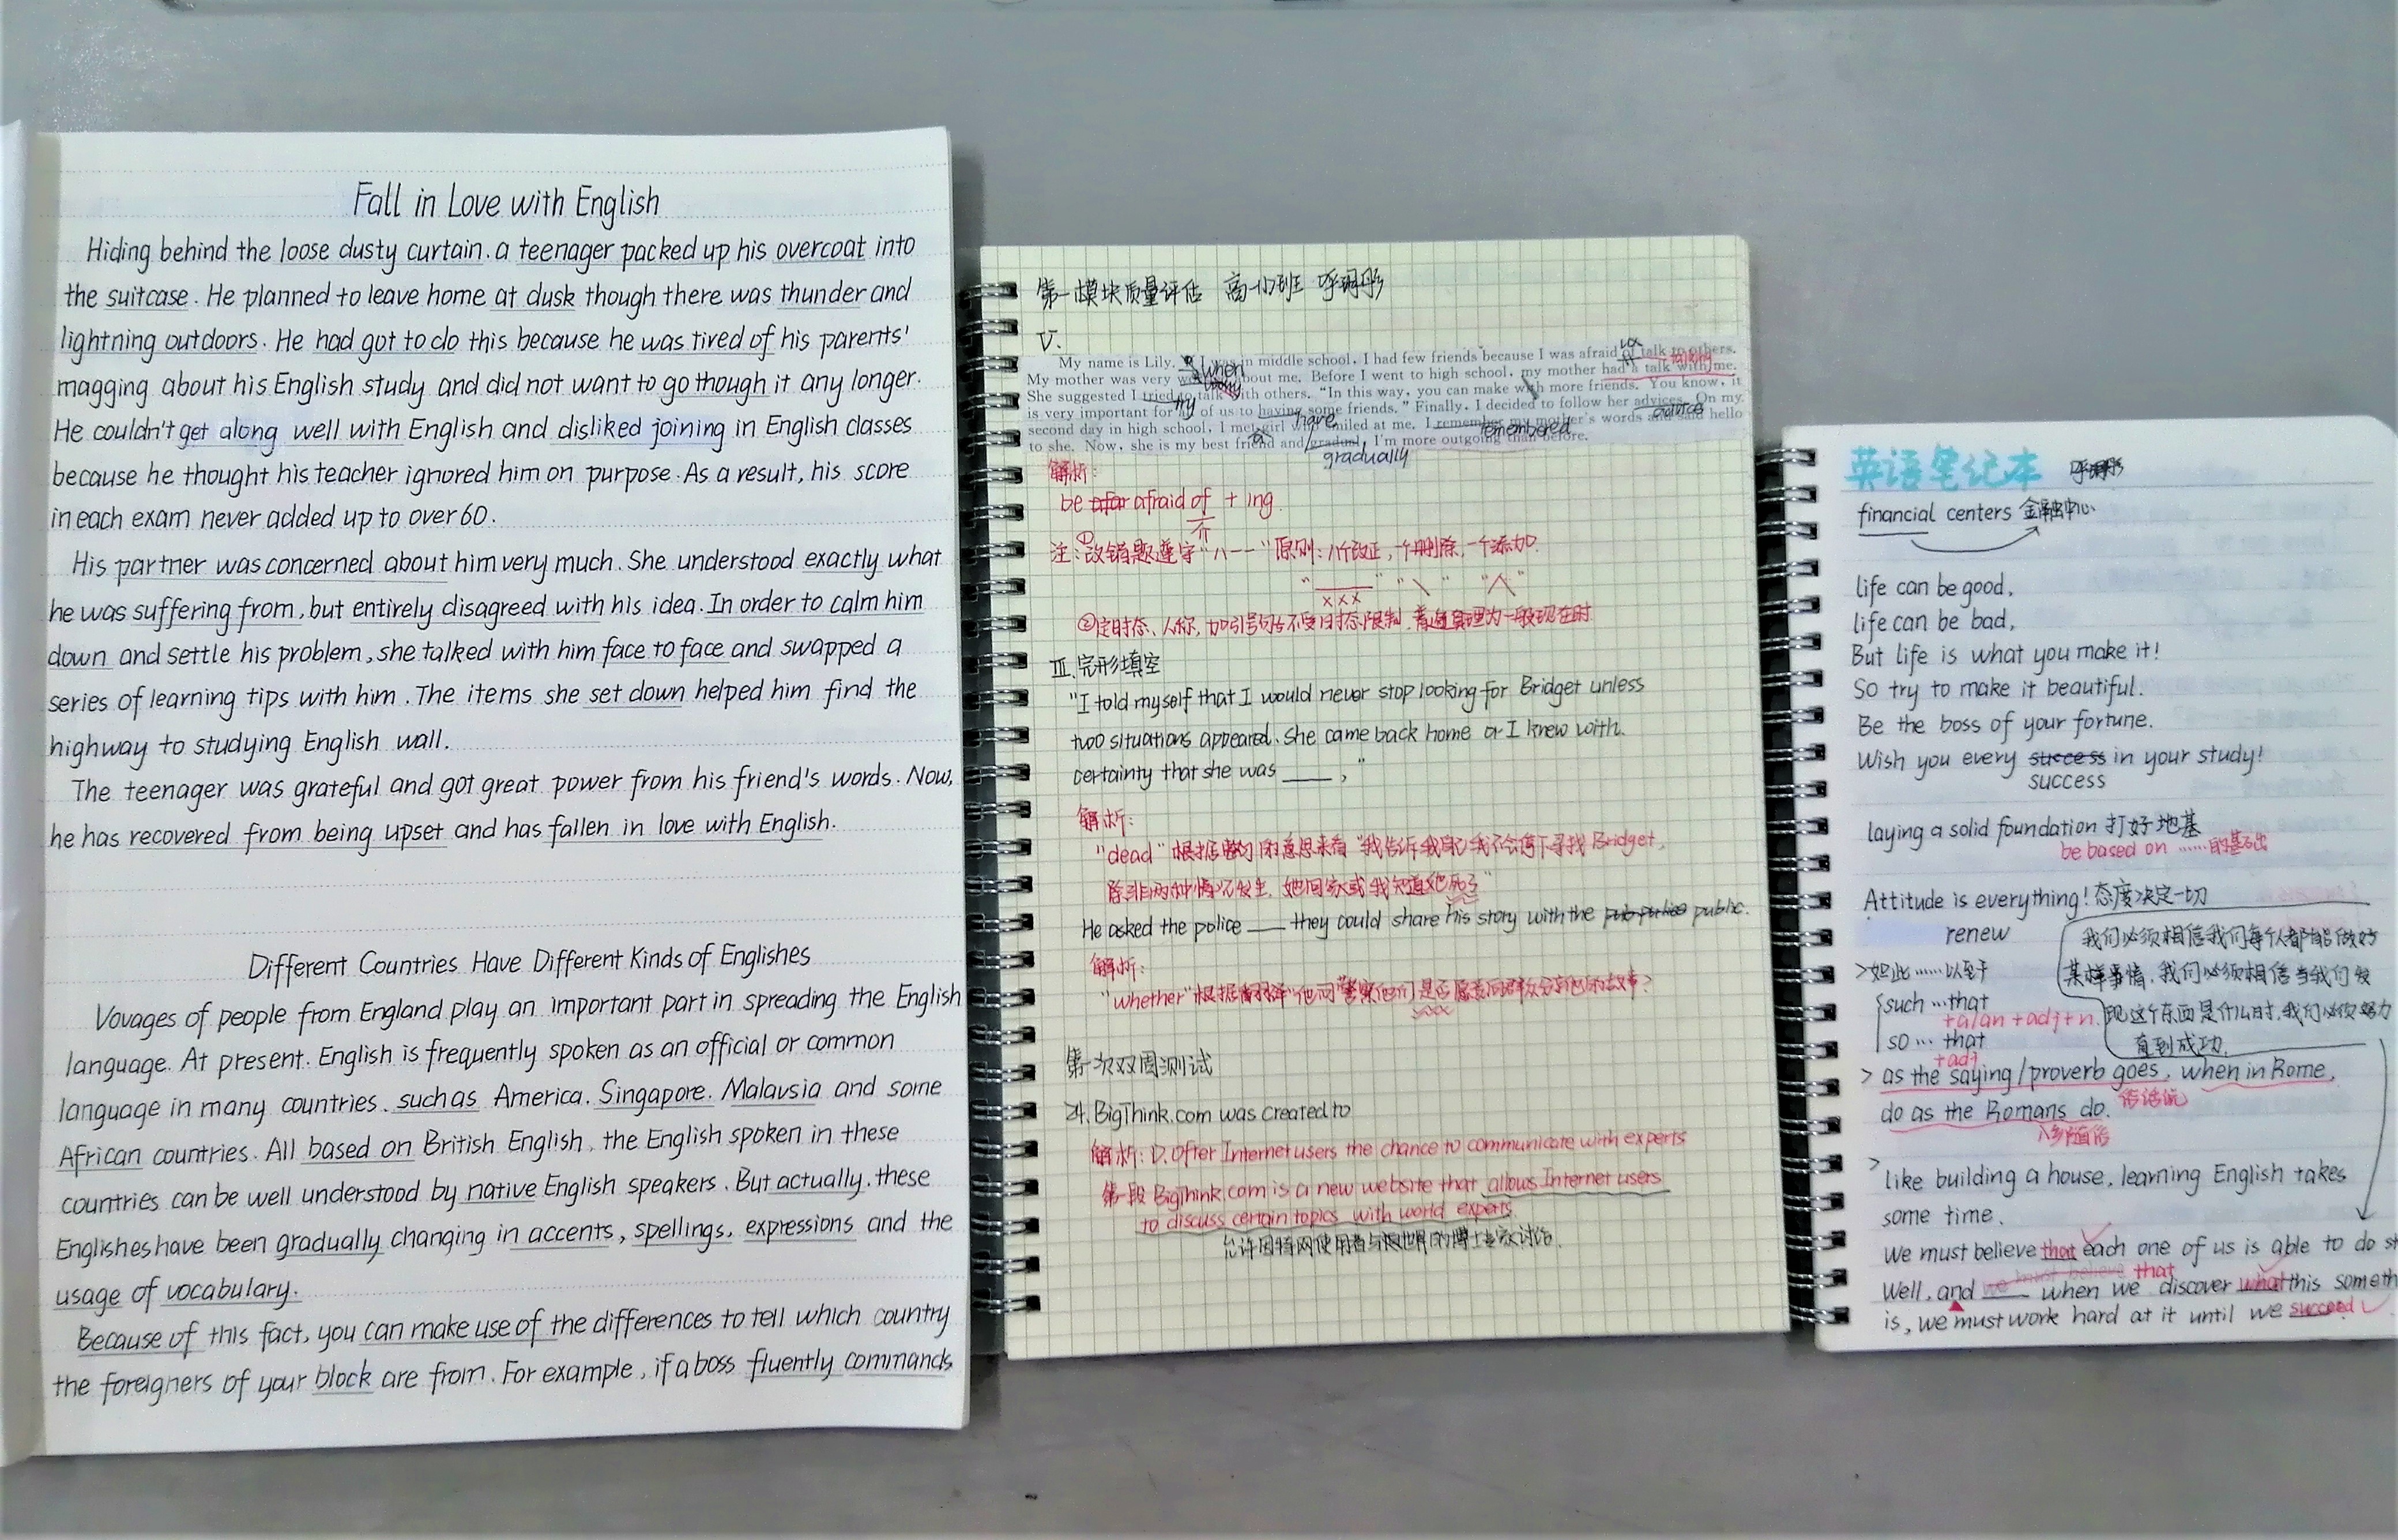 Fall in Love with English
Hiding behind the loose dusty curtain. a teenager packed up his overcoat into
the suitcase. He planned to leave home at dusk though there was thunder and
lightning outdoors. He had got to do this because he was tired of his parents'
magging about his English study and did not want to go though it any longer.
He couldn't get along well with English and disliked joining in English classes
because he thought his teacher ignored him on purpose. As a result, his score
in each exam never added up to over 60.
His partner was concerned about him very much. She understood exactly what
he was suffering from, but entirely disagreed with his idea. In order to calm him
down and settle his problem, she talked with him face to face and swapped a
series of learning tips with him. The items she set down helped him find the
highway to studying English wall.
The teenager was grateful and got great power from his friend's words. Now,
he has recovered from being upset and has fallen in love with English.
Different Countries Have Different Kinds of Englishes
Vovages of people from England play an important part in spreading the English
language. At present. English is frequently spoken as an official or common
language in many countries. such as America. Singapore. Malavsia and some
African countries. All based on British English, the English spoken in these
countries can be well understood by native English speakers. But actually. these
Englishes have been gradually changing in accents, spellings, expressions and the
usage of vocabulary.
Because of this fact, you can make use of the differences to tell which country
the foreigners of your block are from. For example, if a boss fluently commands
第一模块质量评估 高一
V.
My name is Lily. I was in middle school, I had few friends because I was afraid of talk to others.
when
talking
My mother was very about me. Before I went to high school, my mother had a talk with me.
She suggested I tried to talk with others. "In this way, you can make with more friends. You know, it
try
is very important for of us to having some friends." Finally, I decided to follow her advices. On my
have
advice
second day in high school, I met girl smiled at me. I remember my mother's words and said hello
a
remembered
to she. Now, she is my best friend and gradual, I'm more outgoing than before.
gradually
解析:
be afar afraid of + ing
介
注:①改错题遵守"八一一"原则:八个改正,一个删除,一个添加.
xxx
②定时态、人称,加引号句子不受时态限制,普遍真理为一般现在时
III.完形填空
"I told myself that I would never stop looking for Bridget unless
two situations appeared. She came back home or I knew with.
certainty that she was ____ ,"
解析:
"dead"根据句的意思来看"我告诉我自己我不会停下寻找Bridget,
除非两种情况发生,她回家或我知道她死了"
He asked the police ____ they could share his story with the public.
解析:
"whether"根据翻译"他问警察他们是否愿意向群众分享他的故事?
第一次双周测试
24.BigThink.com was created to
解析:D.Ofter Internet users the chance to communicate with experts
第一段 BigThink.com is a new website that allows Internet users
to discuss certain topics with world experts.
允许因特网使用者与世界的专家讨论.
英语笔记本
financial centers 金融中心
life can be good,
life can be bad,
But life is what you make it!
So try to make it beautiful.
Be the boss of your fortune.
Wish you every success in your study!
success
laying a solid foundation 打好地基
be based on ……的基础
Attitude is everything! 态度决定一切
renew
我们必须相信我们每个人都能做好
>如此……以至于
某样事情,我们必须相信当我们发
such …that
+a/an +adj+n.
现这个东西是什么时,我们必须努力
so … that
直到成功.
+adj
> as the saying/proverb goes, when in Rome,
do as the Romans do.
俗话说
入乡随俗
> like building a house, learning English takes
some time.
we must believe that each one of us is able to do
Well, and ____ when we discover what this
we must believe that
is, we must work hard at it until we succeed